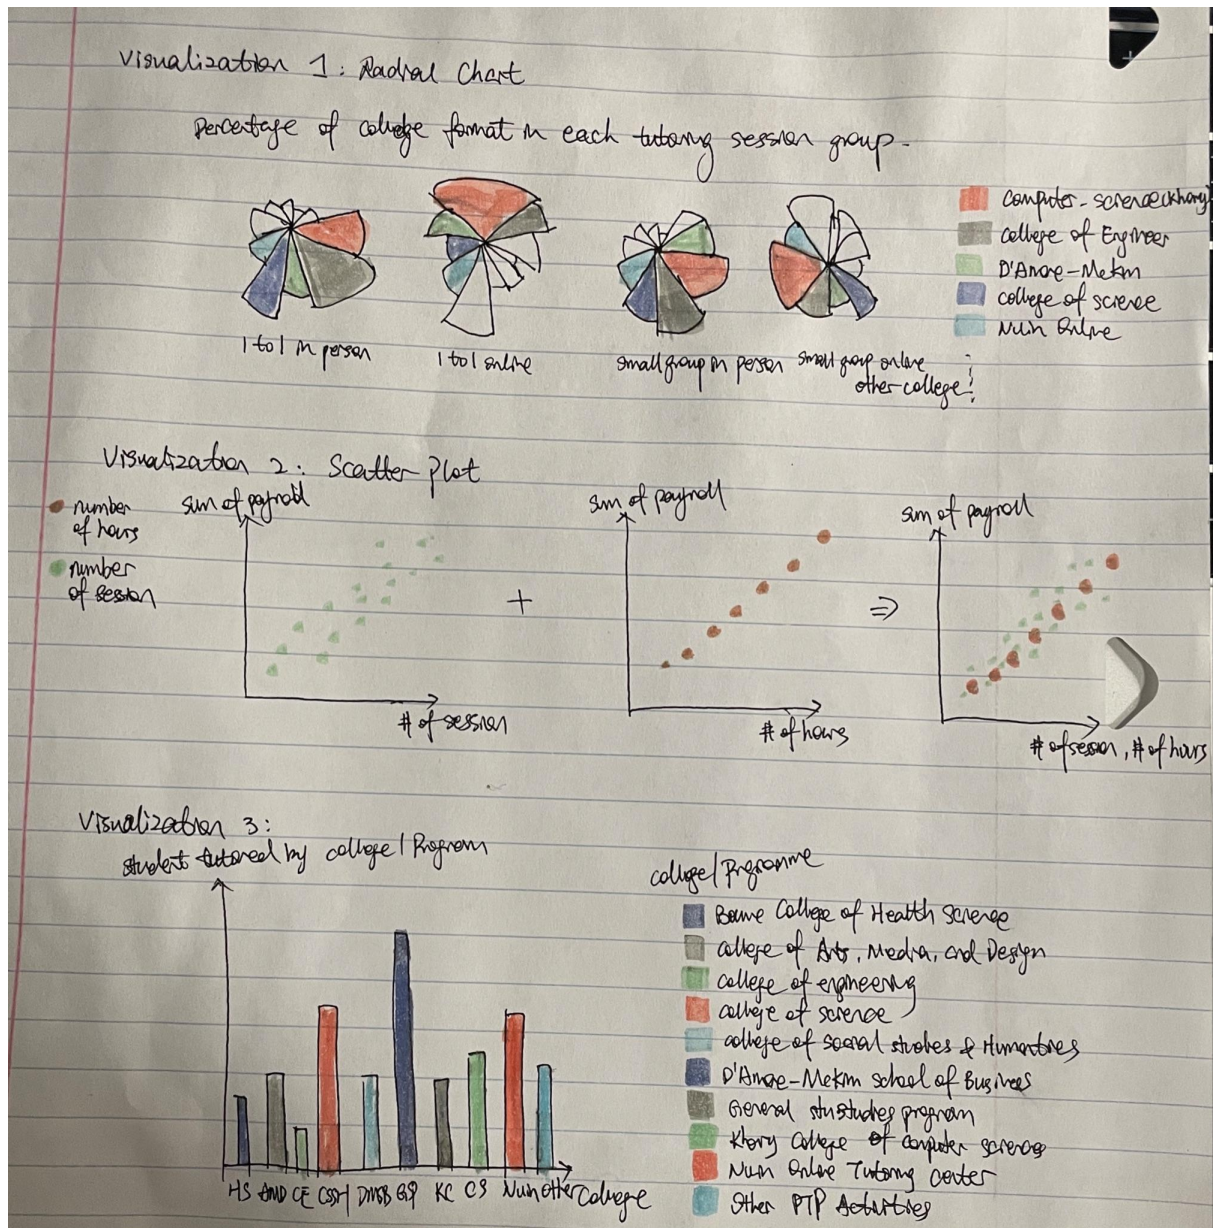 Visualization 1: Radial Chart
Percentage of college format in each tutoring session group.
computer-science(khory)
college of Engineer
D'Amore-Mckim
college of science
Nuin Online
1 to 1 in person
1 to 1 online
small group in person
small group online
other college
Visualization 2: Scatter Plot
number of hours
number of session
sum of payroll
# of session
+
sum of payroll
# of hours
⇒
sum of payroll
# of session, # of hours
Visualization 3:
student tutored by college/Program
HS AMD CE CSSH DMSB GSP KC CS Nuin other College
college/Programme
Bouve College of Health Science
college of Arts, Media, and Design
college of engineering
college of science
college of social studies & Humanities
D'Amore-Mckim school of Business
General program
Khory College of computer sciences
Nuin Online Tutoring center
Other PTP Activities